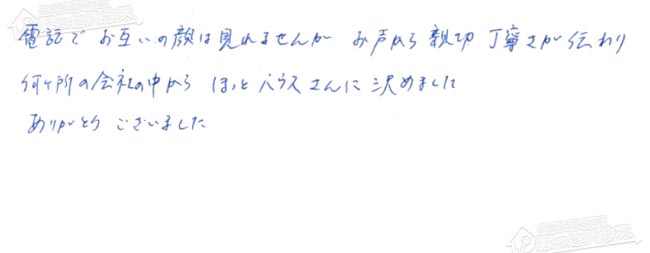 電話で お互いの顔は見れませんが お声から 親切 丁寧さが伝わり
何ヶ所の会社の中から ほっとハウスさんに決めました
ありがとう ございました
ほっとハウス